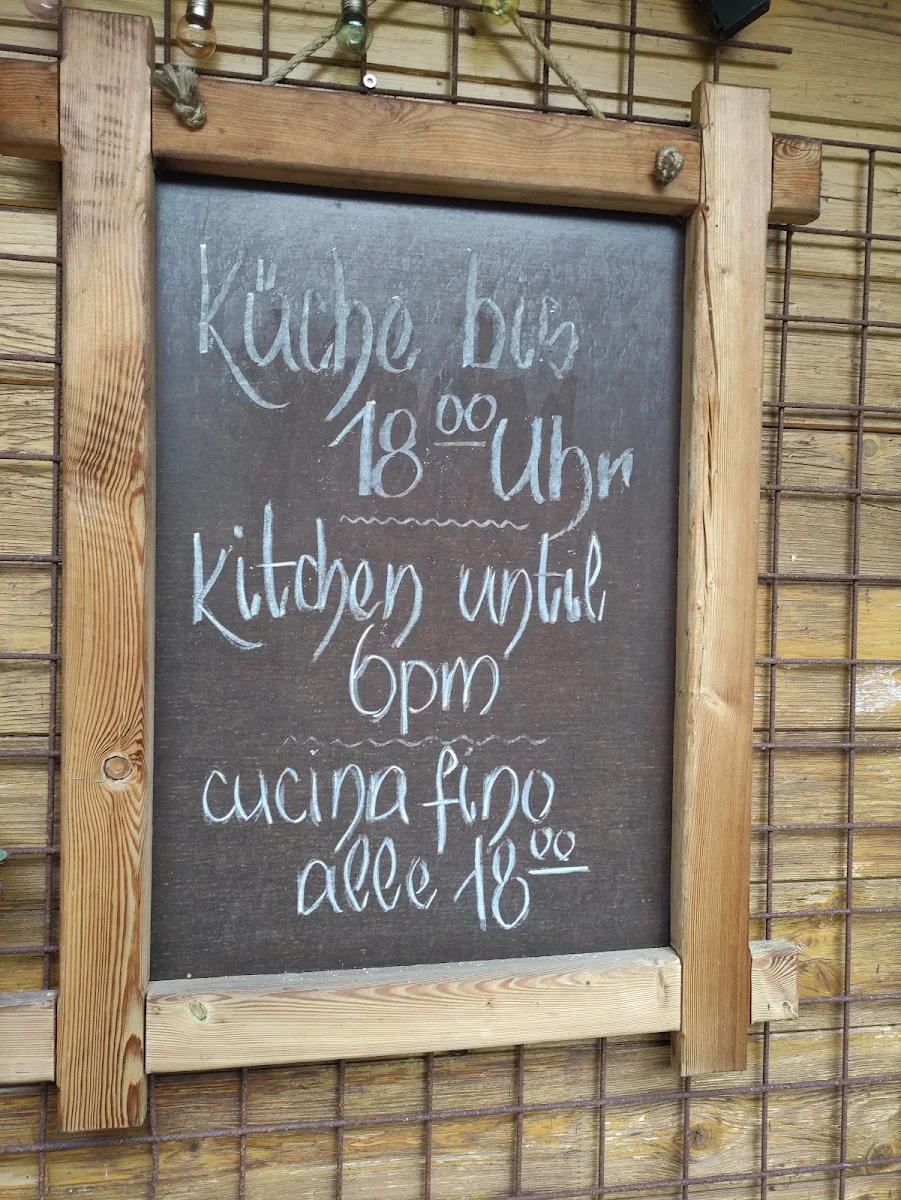 Küche bis
18⁰⁰ Uhr
kitchen until
6pm
cucina fino
alle 18⁰⁰